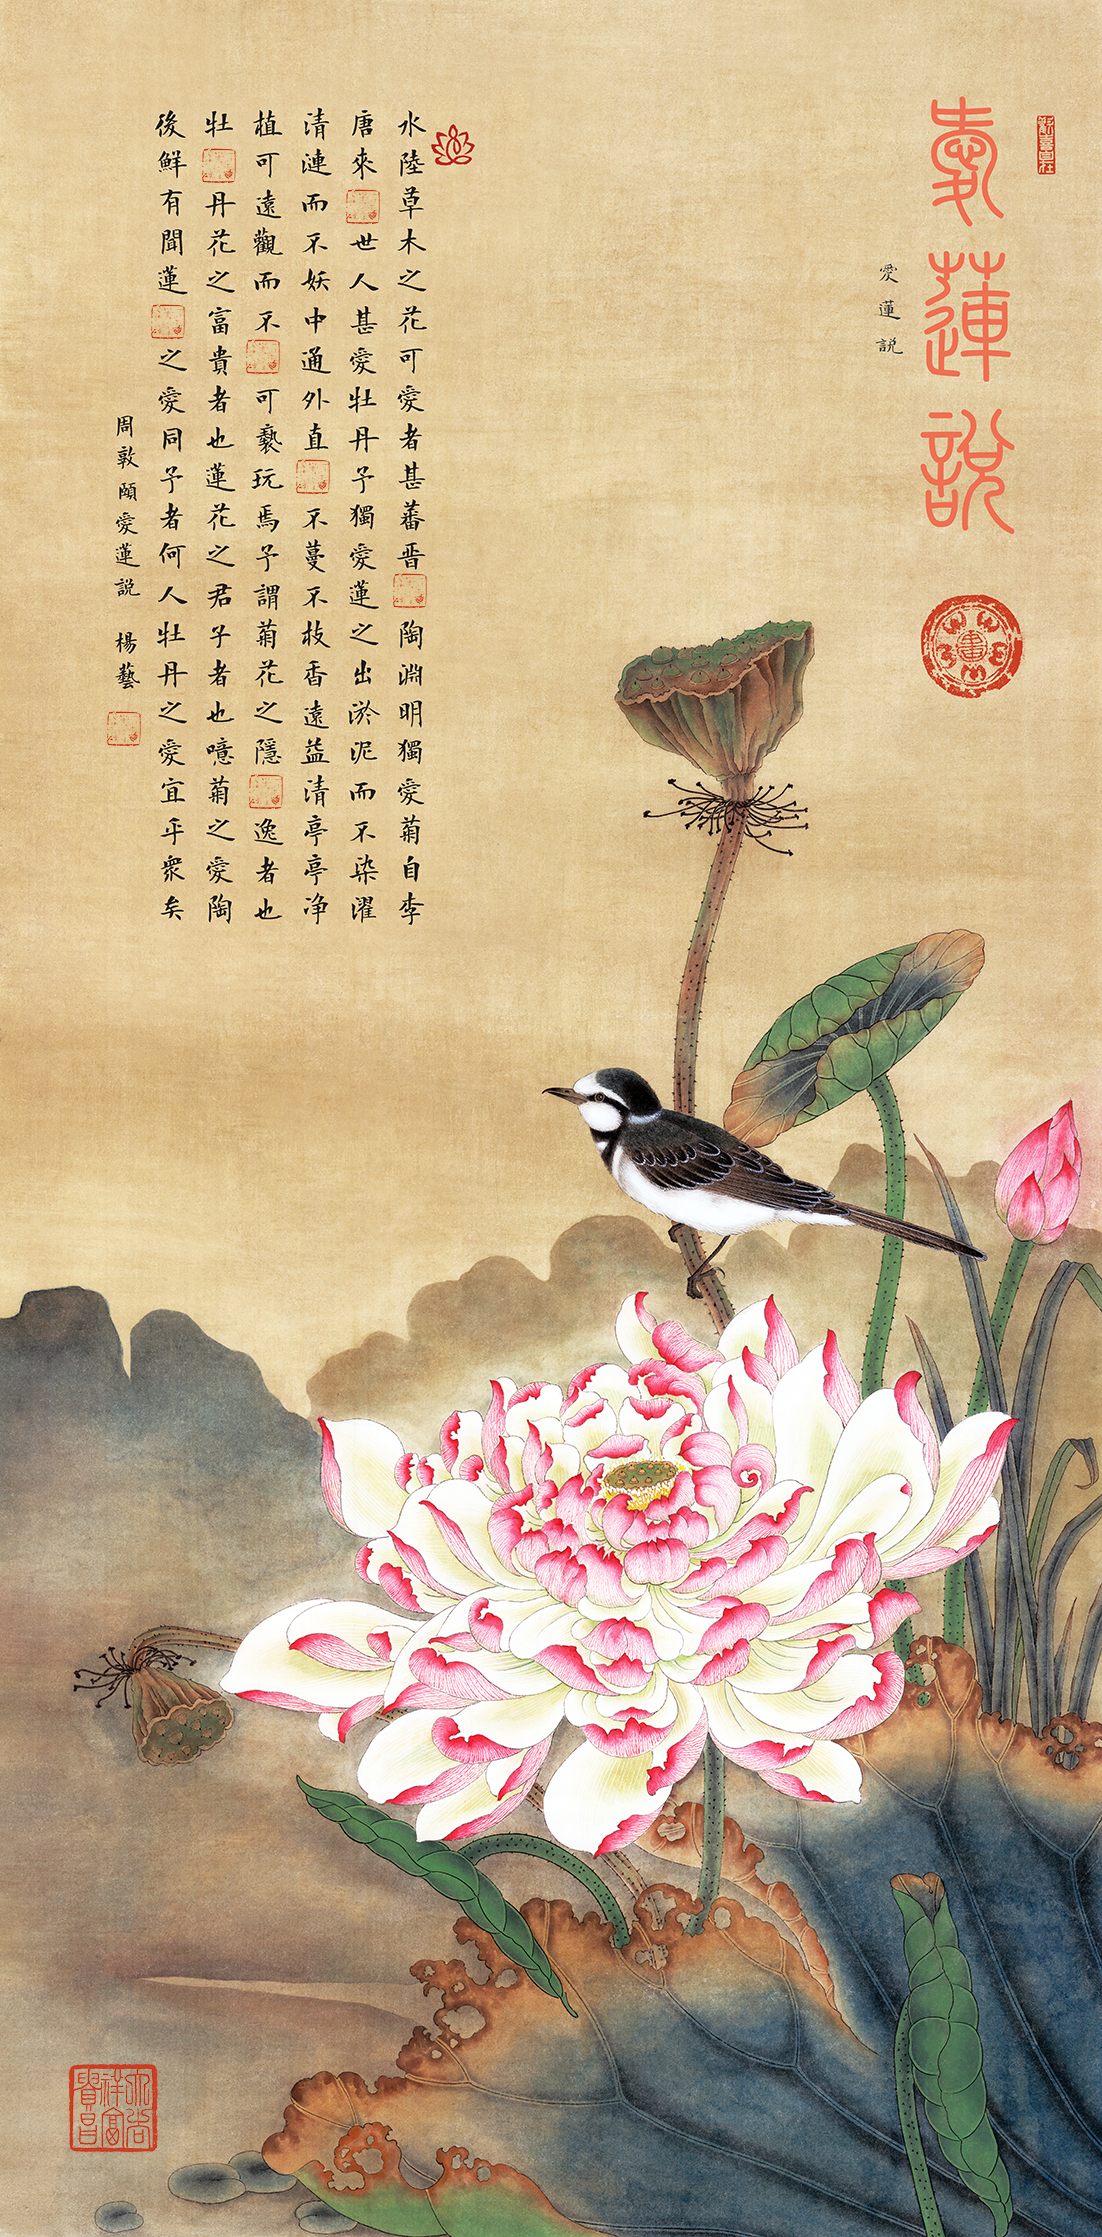 愛蓮說
愛蓮説
水陸草木之花可愛者甚蕃晋陶淵明獨愛菊自李
唐來世人甚愛牡丹予獨愛蓮之出淤泥而不染濯
清漣而不妖中通外直不蔓不枝香遠益清亭亭净
植可遠觀而不可褻玩焉予謂菊花之隱逸者也
牡丹花之富貴者也蓮花之君子者也噫菊之愛陶
後鮮有聞蓮之愛同予者何人牡丹之愛宜乎衆矣
周敦頤愛蓮説 楊藝